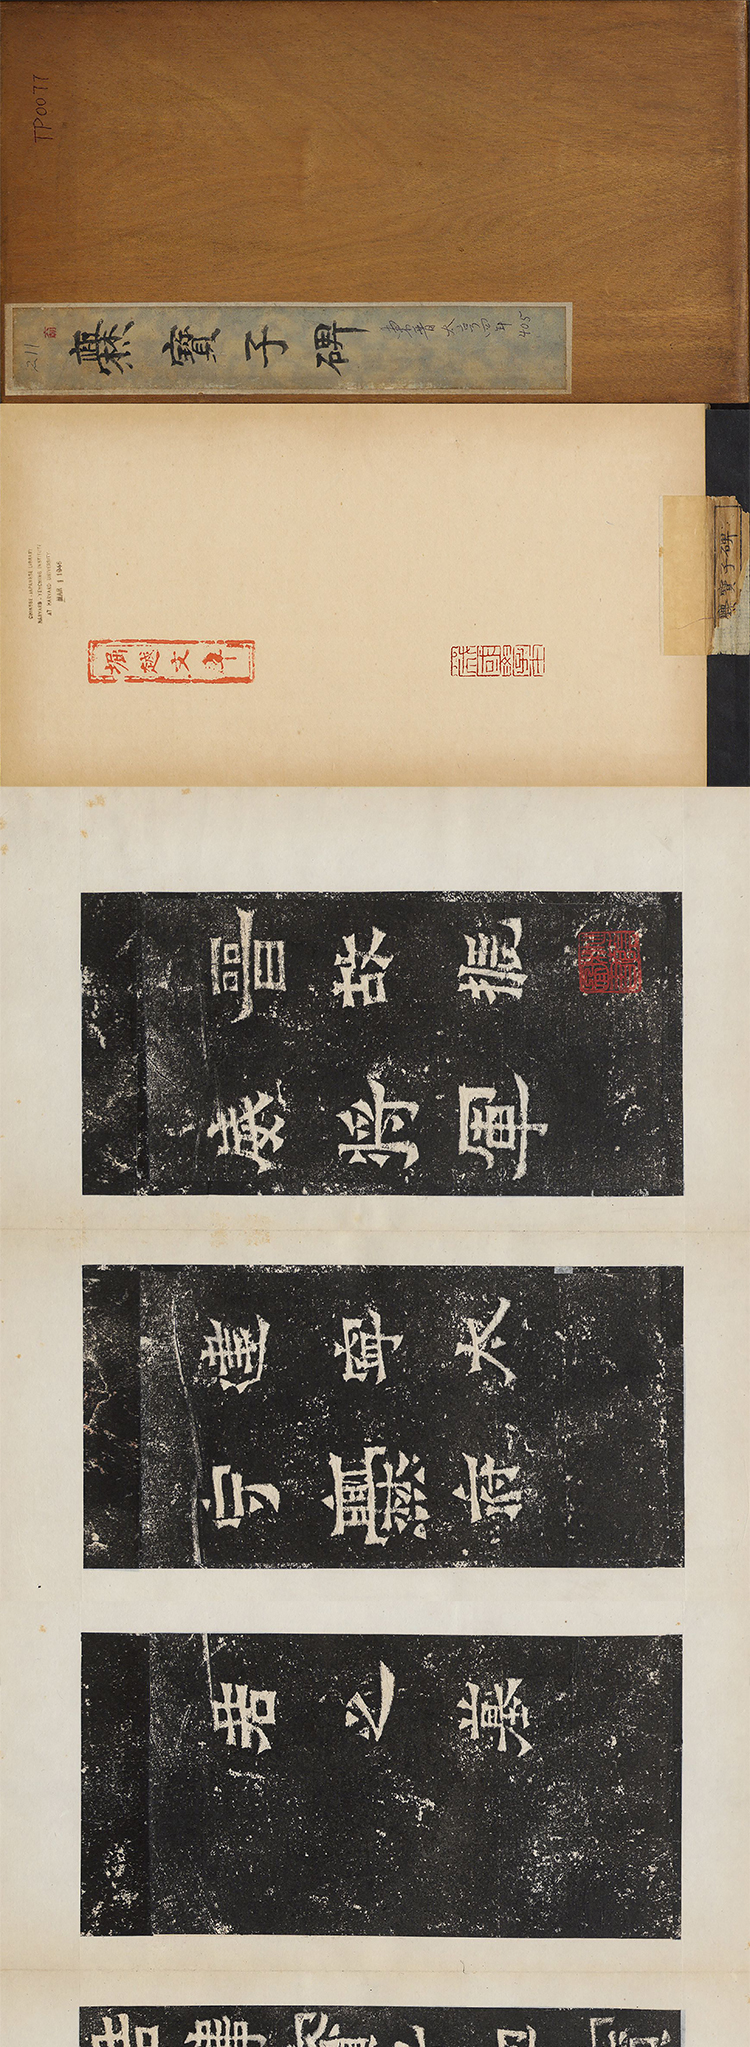 TP0077
211
爨寶子碑
東晉太亨四年
405
CHINESE-JAPANESE LIBRARY
HARVARD-YENCHING INSTITUTE
AT HARVARD UNIVERSITY
MAR 1 1946
堀越文
爨寶子碑
晉故振
威將軍
建寧太
守爨府
君之墓